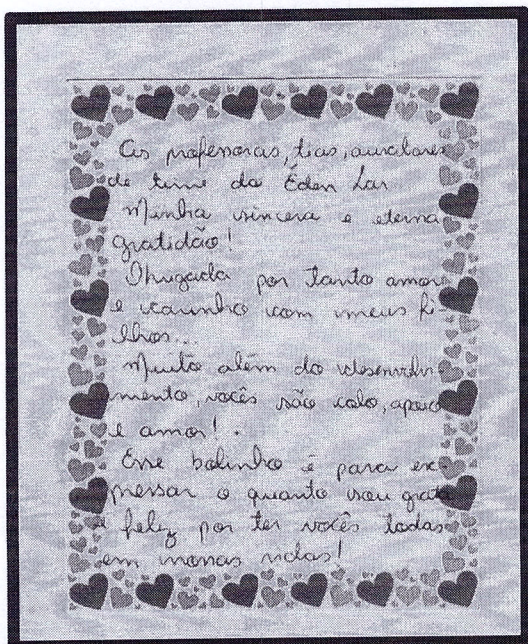 As professoras, tias, auxiliares
de time do Éden Lar
Minha sincera e eterna
gratidão!
Obrigada por tanto amor
e carinho com meus fi-
lhos...
Muito além do desenvolvi-
mento, vocês são colo, apoio
e amor! .
Esse bolinho é para ex-
pressar o quanto sou grata
e feliz por ter vocês todas
em nossas vidas!